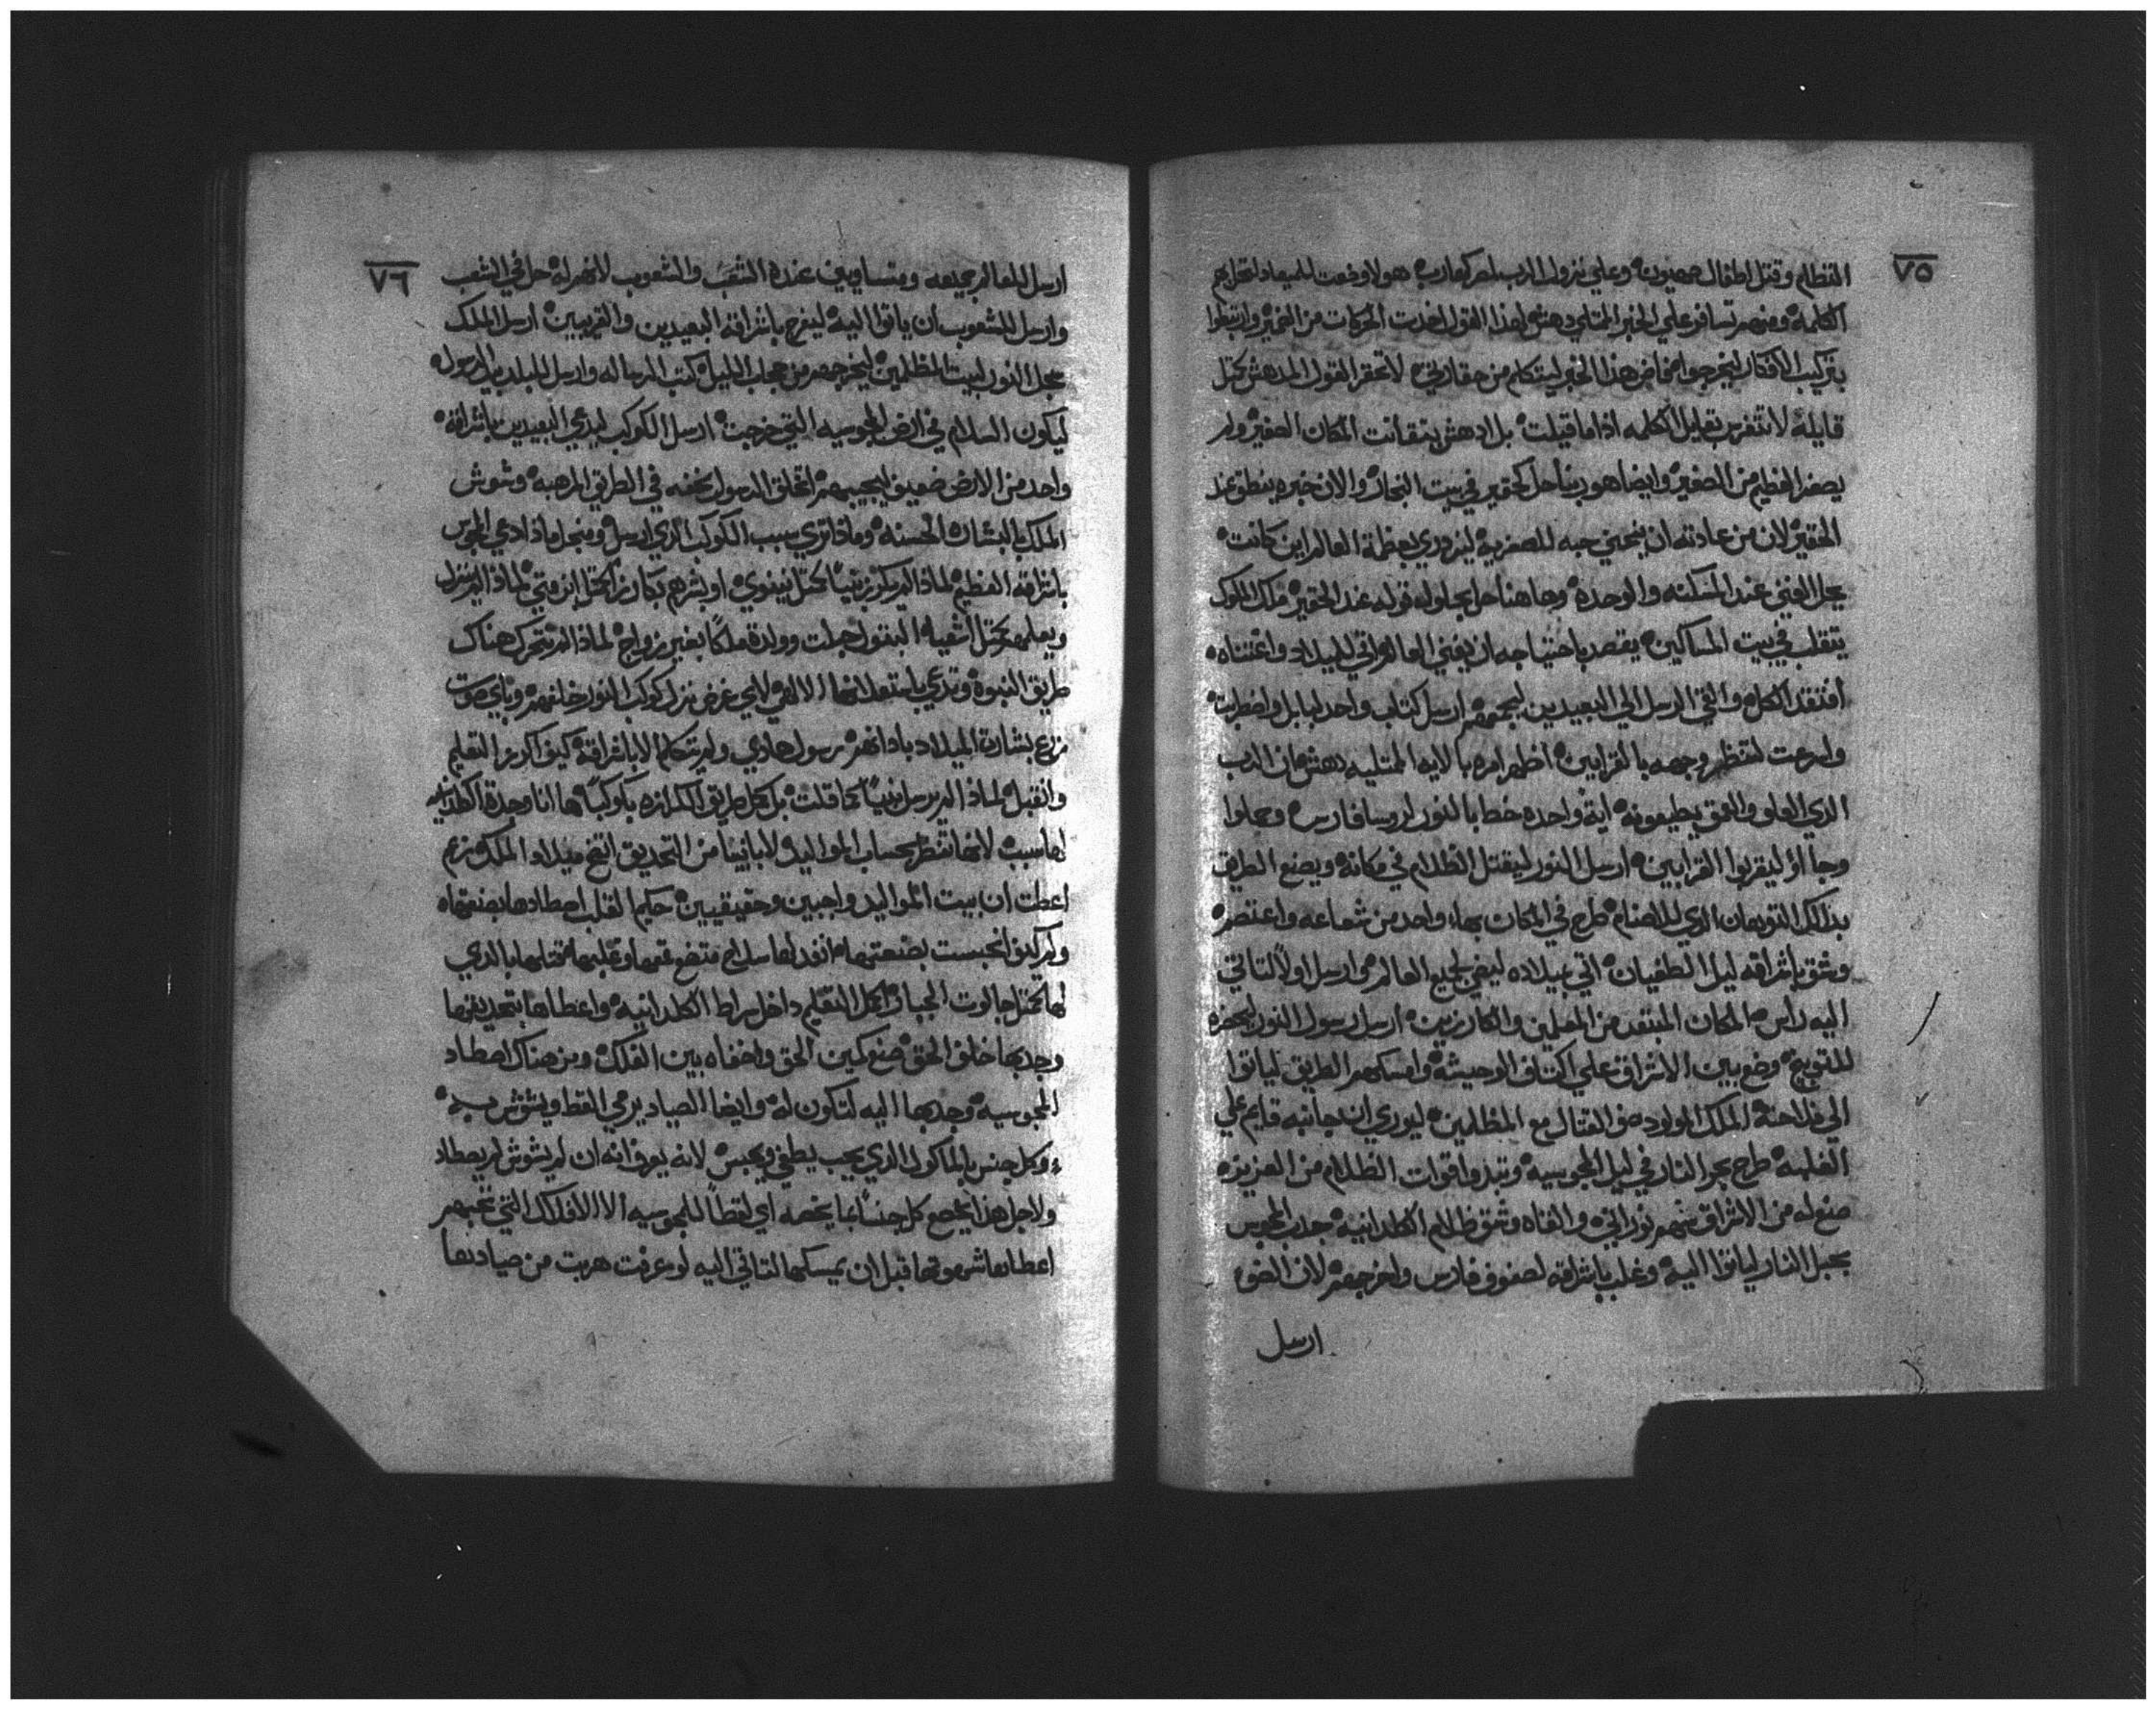 ٧٥
العظام وقتل اطفال صهيون وعلي نزول الرب لمركبة هولا وضعت للميعاد
الكلمه ومنهم تسافر علي الخبر الممتلي دهش لهذا القول اخذت الحركات من الضمير وارتبطوا
بتركيب الافكار ليخرجوا هذا الخبر ليتكلم من حقارتي لا تحقر القول المدهش كمثل
قايله لا تتفرس بقايل الكلمه اذا ما قيلت بل ادهش بنقا انت المكان الصغير ولم
يصغر العظيم من الصغير وايضا هو ربنا حل كحقير في بيت النجار والان خبره ينطق عند
الحقير لان من عادته ان ينحني حبه للصغريه ليزدري بعظمة العالم اين كانت
يحل الغني عند المسكنه والوحده وها هنا حل قوله عند الحقير ملك الملوك
يتقلب في بيت المساكين يقصد باحتياجه ان يغني العالم اتي للميلاد واعتناه
افتقد الكل والقي الرسل الي البعيدين ليجمعهم ارسل كتاب واحد لبابل واضطربت
واسرعت لتنظر وجهه بالقرابين اظهر امره بالايه الممتليه دهش ان الرب
الذي العلو والعمق يطيعونه اية واحده خطها بالنور لروسا فارس وعجلوا
وجا اؤ ليقربوا القرابين ارسل النور ليقتل الظلام في مكانه ويصنع الطريق
بذلك التوهان الذي للاصنام طرح في المكان بهاء واحد من شعاعه واعتصره
وشق باشراقه ليل الطغيان اتي بميلاده ليضي لجميع العالم من ارسل اولاً لتاتي
اليه راس المكان المبتعد من المعلمين والكارزين ارسل رسول النور ليحضره
للتوبيخ وضع بين الاشراق علي اكتاف الوحيشه وامسكهم الطريق لياتوا
الي فلاحة الملك المولود صف القتال مع المظلمين ليوري ان جانبه قايم علي
الغلبه طرح بحر النار في ليل المجوسيه وتبدوا قوات الظلام من العزيزه
صنع له من الاشراق سهم نوراني والقاه وشق ظلام الكلدانيه جدب المجوس
بحبل النار لياتوا اليه وغلب باشراقه لصفوف فارس واخرجهم لان الضوء
ارسل
٧٦
ارسل للعالم جميعه ومتساويين عنده الشعب والشعوب لانهم له حل في الشعب
وارسل للشعوب ان ياتوا اليه ليفرح باشراقه البعيدين والقريبين ارسل الملك
عجل النور لبيت المظلمين ليخرجهم من حجاب الليل كتب الرساله وارسل للبلد بيد الرسول
ليكون السلام في ارض المجوسيه التي خرجت ارسل الكوكب ليدعي البعيدين باشراقه
واحد من الارض ضعيف ليجيبهم اتخلق الرسول بخفه في الطريق المرهبه وشوش
الملك بالبشاره الحسنه وماذا تري سبب الكوكب الذي ارسل ومن اجل ماذا ادعي المجوس
باشراقه العظيم لماذا لم يكرز نبياً كمثل نينوي او بشرهم بكارز كمثل ابن متي لماذا لم ينزل
ويعلمهم كمثل اشعيا البتول حبلت وولدة ملكاً بغير زواج لماذا لم تتحرك هناك
طريق النبوه وتدعي باستعلانها الالهي لاي غرض نزل كوكب النور خلفهم وباي صوت
زرع بشارة الميلاد باداتهم رسول هادي ولم يتكلم الا باشراقه كيف اكرز التعليم
وانقبل لماذا لم يرسل نبياً كما قلت بل كمل طريق الكرازه بكوكباً ها انا وجدة الكلدانيه
لها سبب لانها تنظر بحساب المواليد لا باينا من التحديق اتضح ميلاد الملك زعم
اعطت ان بيت المواليد واجبين وحقيقيين حكيم القلب اصطادها بصنعتها
ولم كيف انحبست بصنعتها انفد لها سلاح متضع فيها وغلبها قتلها بالذي
لها كمثل جالوت الجبار اكمل التعليم داخل براط الكلدانيه واعطاها بتحديثها
وجدبها خلف الحق صنع كمين الحق واخفاه بين الفلك ومن هناك اصطاد
المجوسيه وجدبها اليه لتكون له وايضا الصياد يرمي القط ويشوش به
وكل جنس بالماكول الذي يحب يطغي ويحبس لانه يعرف انه ان لم يشوش لم يصطاد
ولاجل هذا يخضع كل جنساً بما يخصه اي لقطاً للمجوسيه الا الافلاك التي تحبهم
اعطاها شهوتها قبل ان يمسكها لتاتي اليه لو عرفت هربت من صيادها